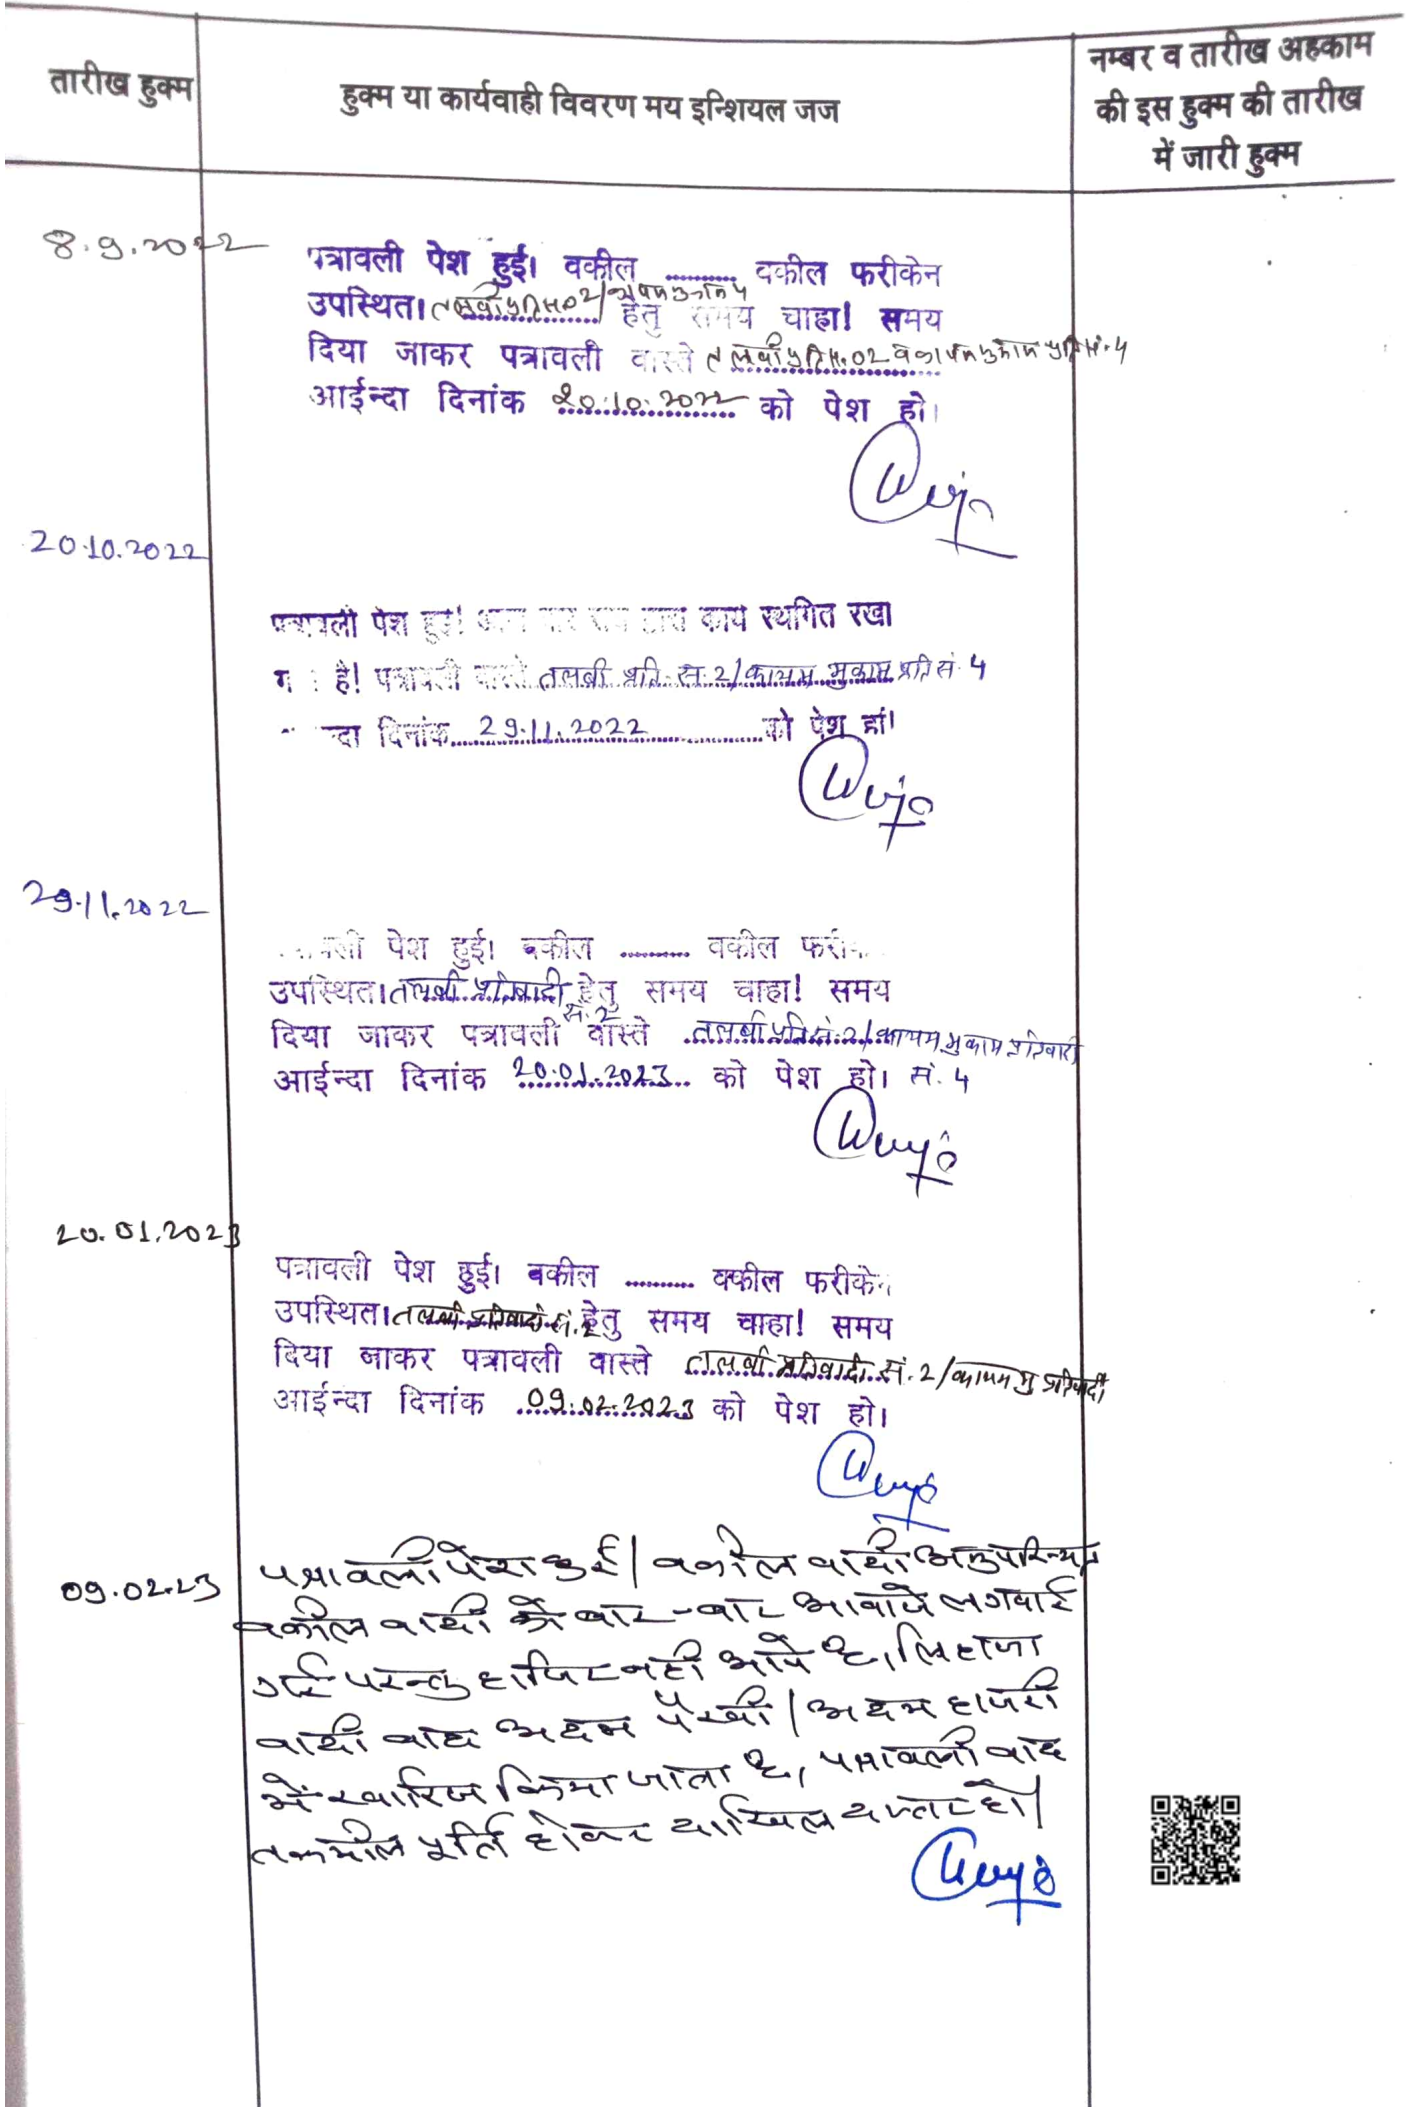 तारीख हुक्म
हुक्म या कार्यवाही विवरण मय इन्शियल जज
नम्बर व तारीख अहकाम
की इस हुक्म की तारीख
में जारी हुक्म
8.9.2022
पत्रावली पेश हुई। वकील .......... वकील फरीकेन
उपस्थित। हेतु समय चाहा! समय
दिया जाकर पत्रावली वास्ते
आईन्दा दिनांक 20.10.2022 को पेश हो।
20.10.2022
पत्रावली पेश हुई! कार्य स्थगित रखा
है! पत्रावली वास्ते तलबी प्रति. सं. 2/कायम मुकाम प्रति सं. 4
दिनांक 29.11.2022 को पेश हो।
29.11.2022
पेश हुई। वकील .......... वकील
उपस्थित। तलबी प्रतिवादी सं. 2 हेतु समय चाहा! समय
दिया जाकर पत्रावली वास्ते तलबी प्रति सं. 2/कायम मुकाम प्रतिवादी
आईन्दा दिनांक 20.01.2023 को पेश हो। सं. 4
20.01.2023
पत्रावली पेश हुई। वकील .......... वकील फरीकेन
उपस्थित। तलबी प्रतिवादी सं. 2 हेतु समय चाहा! समय
दिया जाकर पत्रावली वास्ते तलबी प्रतिवादी सं. 2/कायम मु प्रतिवादी
आईन्दा दिनांक 09.02.2023 को पेश हो।
09.02.23
पत्रावली पेश हुई। वकील वादी अनुपस्थित
वकील वादी को बार-बार आवाजे लगवाई
गई परन्तु हाजिर नही आये है, लिहाजा
वादी वाद अदम पैरवी/अदम हाजरी
में खारिज किया जाता है, पत्रावली बाद
तकमील पूर्ति होकर दाखिल दफ्तर हो।